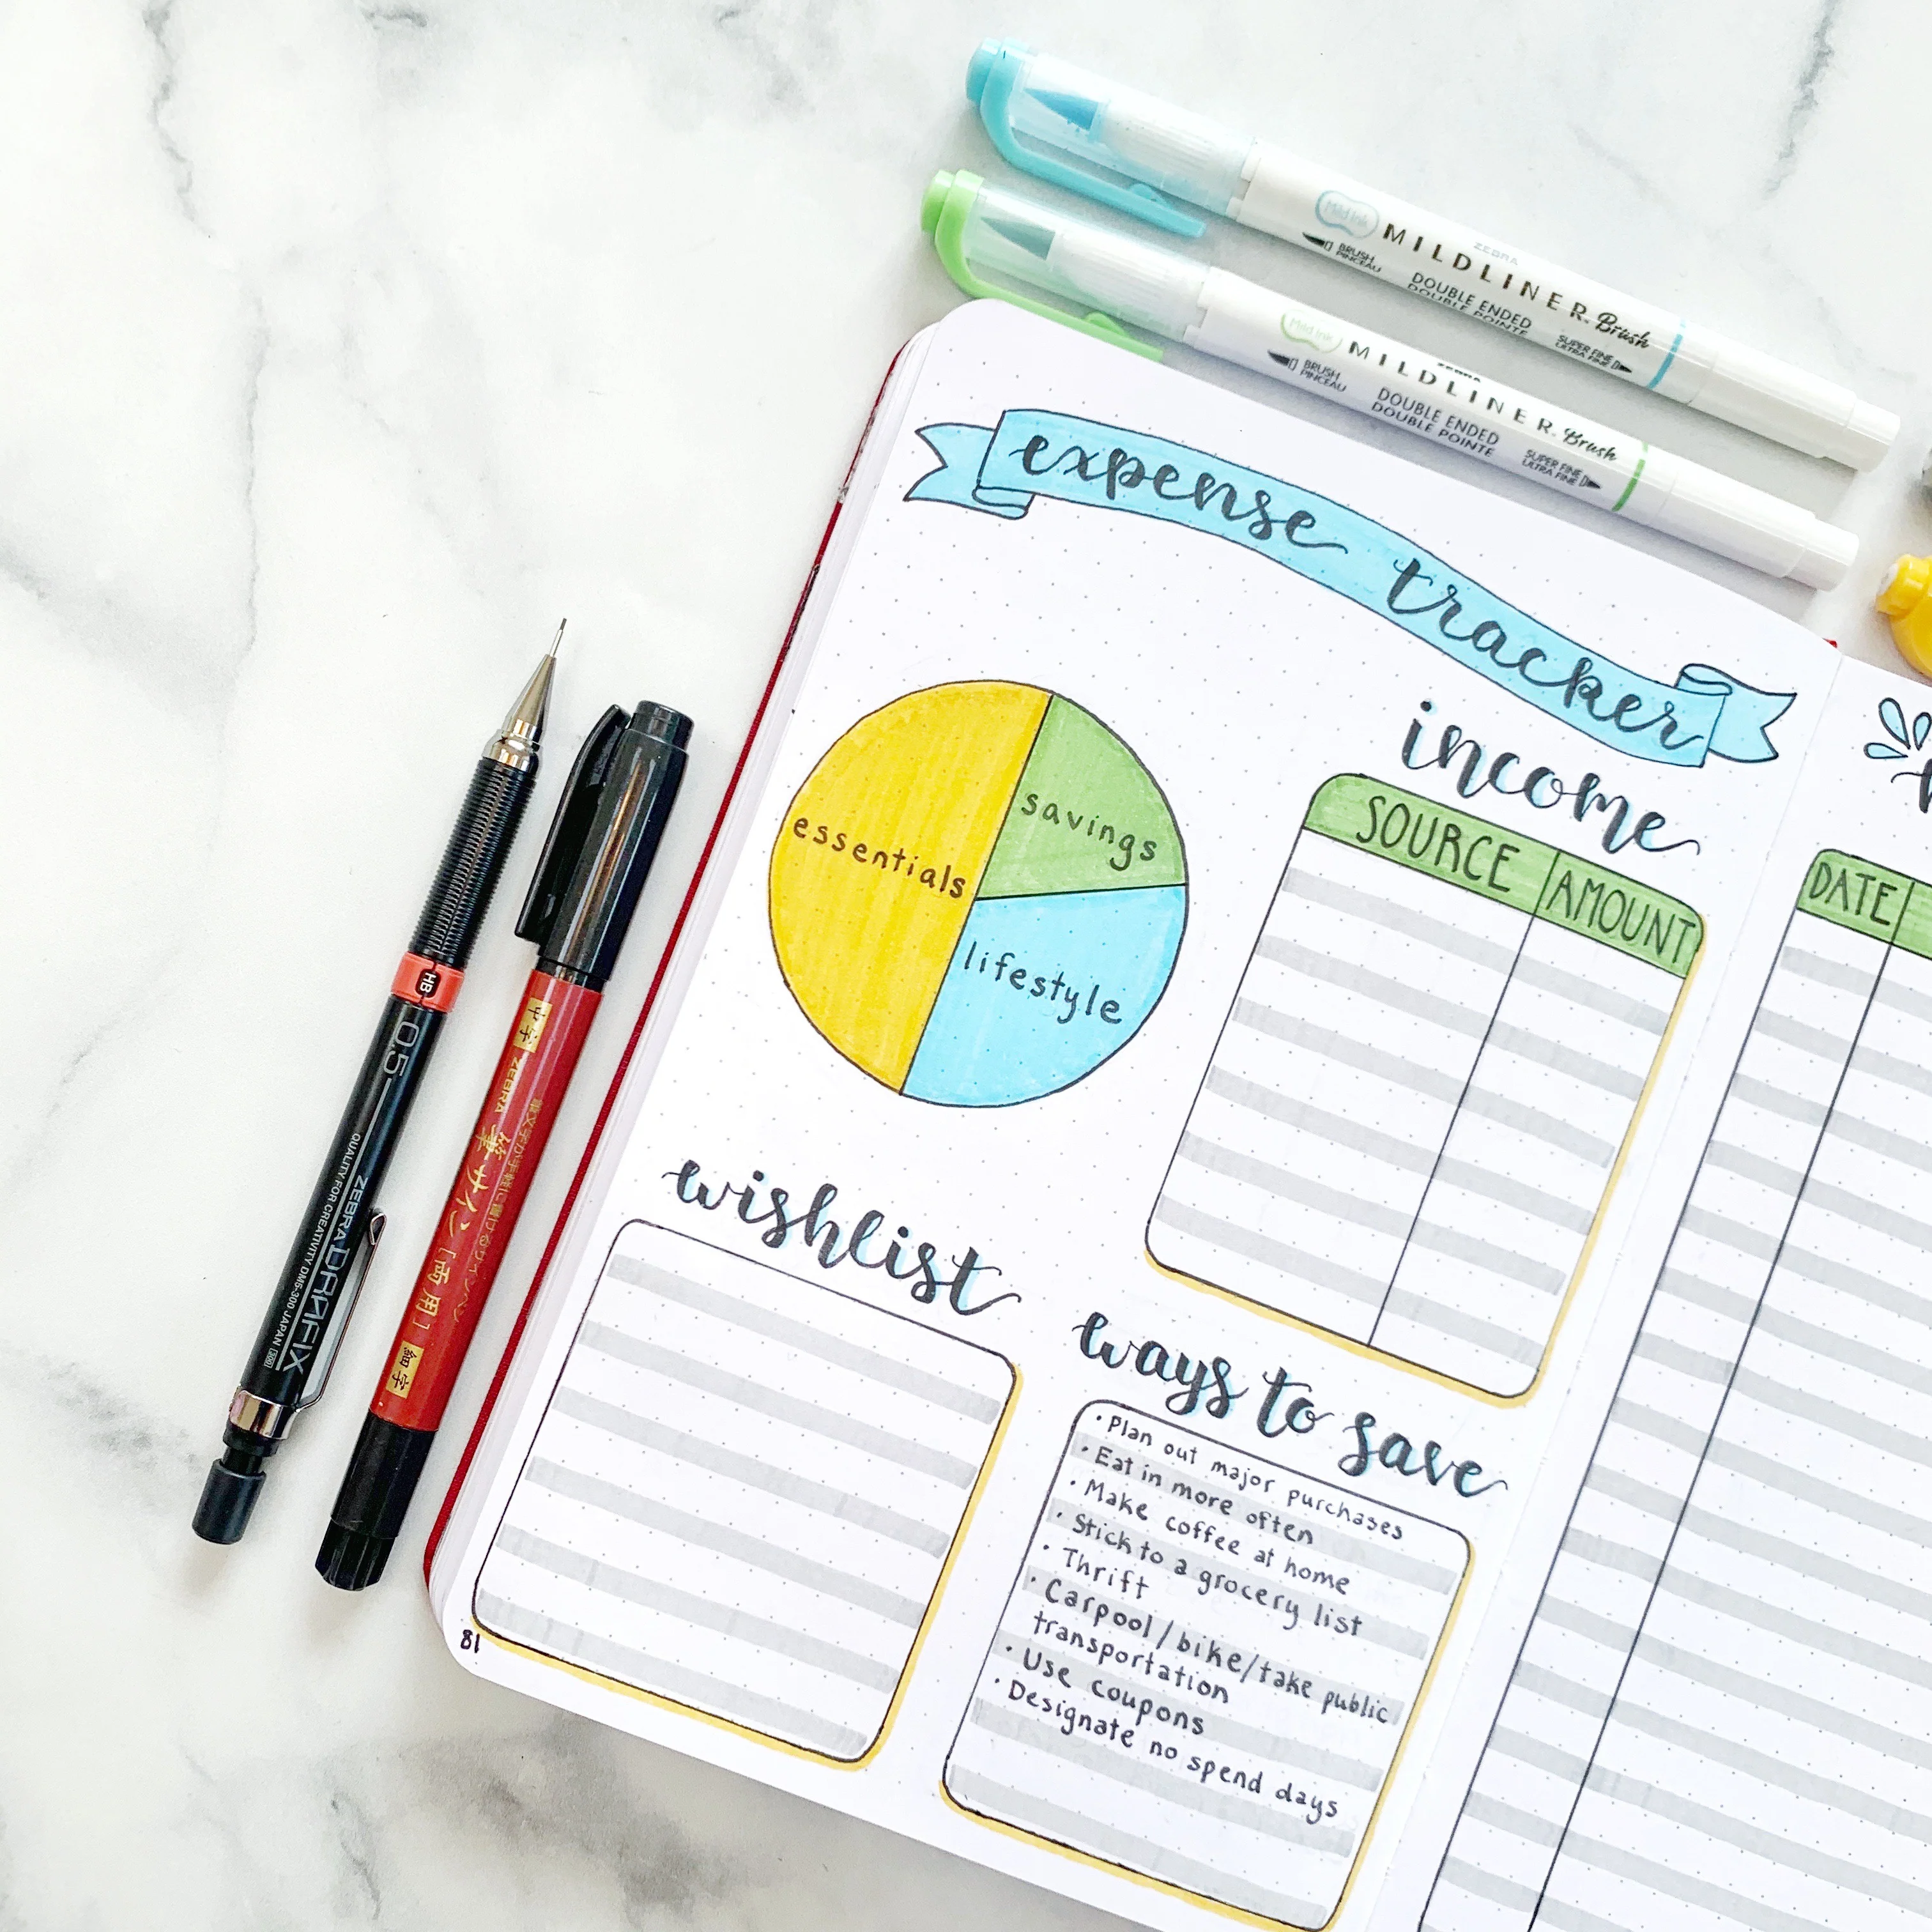 Mild Ink
ZEBRA
MILDLINER. Brush
BRUSH
PINCEAU
DOUBLE ENDED
DOUBLE POINTE
SUPER FINE
ULTRA FINE
Mild Ink
ZEBRA
MILDLINER. Brush
BRUSH
PINCEAU
DOUBLE ENDED
DOUBLE POINTE
SUPER FINE
ULTRA FINE
expense tracker
essentials
savings
lifestyle
income
SOURCE AMOUNT
DATE
wishlist
ways to save
• Plan out major purchases
• Eat in more often
• Make coffee at home
• Stick to a grocery list
• Thrift
• Carpool/bike/take public
transportation
• Use coupons
• Designate no spend days
81
HB
0.5
ZEBRA DRAFIX
QUALITY FOR CREATIVITY DM5-300 JAPAN
中字
ZEBRA 筆サイン [両用]
筆文字が手軽に書けるサインペン
細字